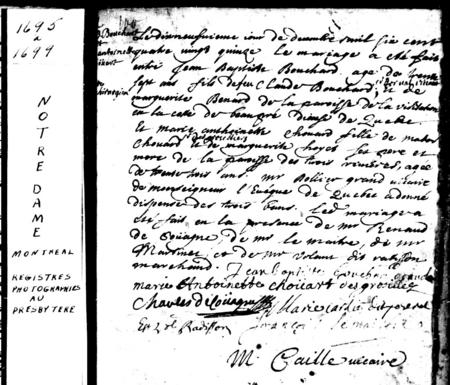 1695
à
1699
NOTRE DAME
MONTREAL
REGISTRES
PHOTOGRAPHIES
AU
PRESBYTERE
Bouchard
et antoinette
Le dixneufvieme iour de decembre mil six cent
quatre vingt quinze le mariage a eté fait
entre Jean Baptiste Bouchard agé de trente
sept ans fils defeu Claude Bouchard et de
marguerite Benard de la paroisse de la visitation
en la coste de beaupré diocese de Quebec
Et marie anthoinette chouard fille de
Chouard et de marguerite hayet ses pere et
mere de la paroisse des trois rivieres, agée
de trente trois ans mr Dollier grand vicaire
de monseigneur l'Eveque de Quebec a donné
dispense des trois bans. Led mariage a
eté fait en la presence de mr Renaud
de Coüagne, de mr le maitre, de mr
Martinet et de mr Volant dit
marchand.
Jean baptiste
marie Anthoinette choüart des groseilliers
Charles de Coüagne
Radisson
francois
Mr Caille vicaire